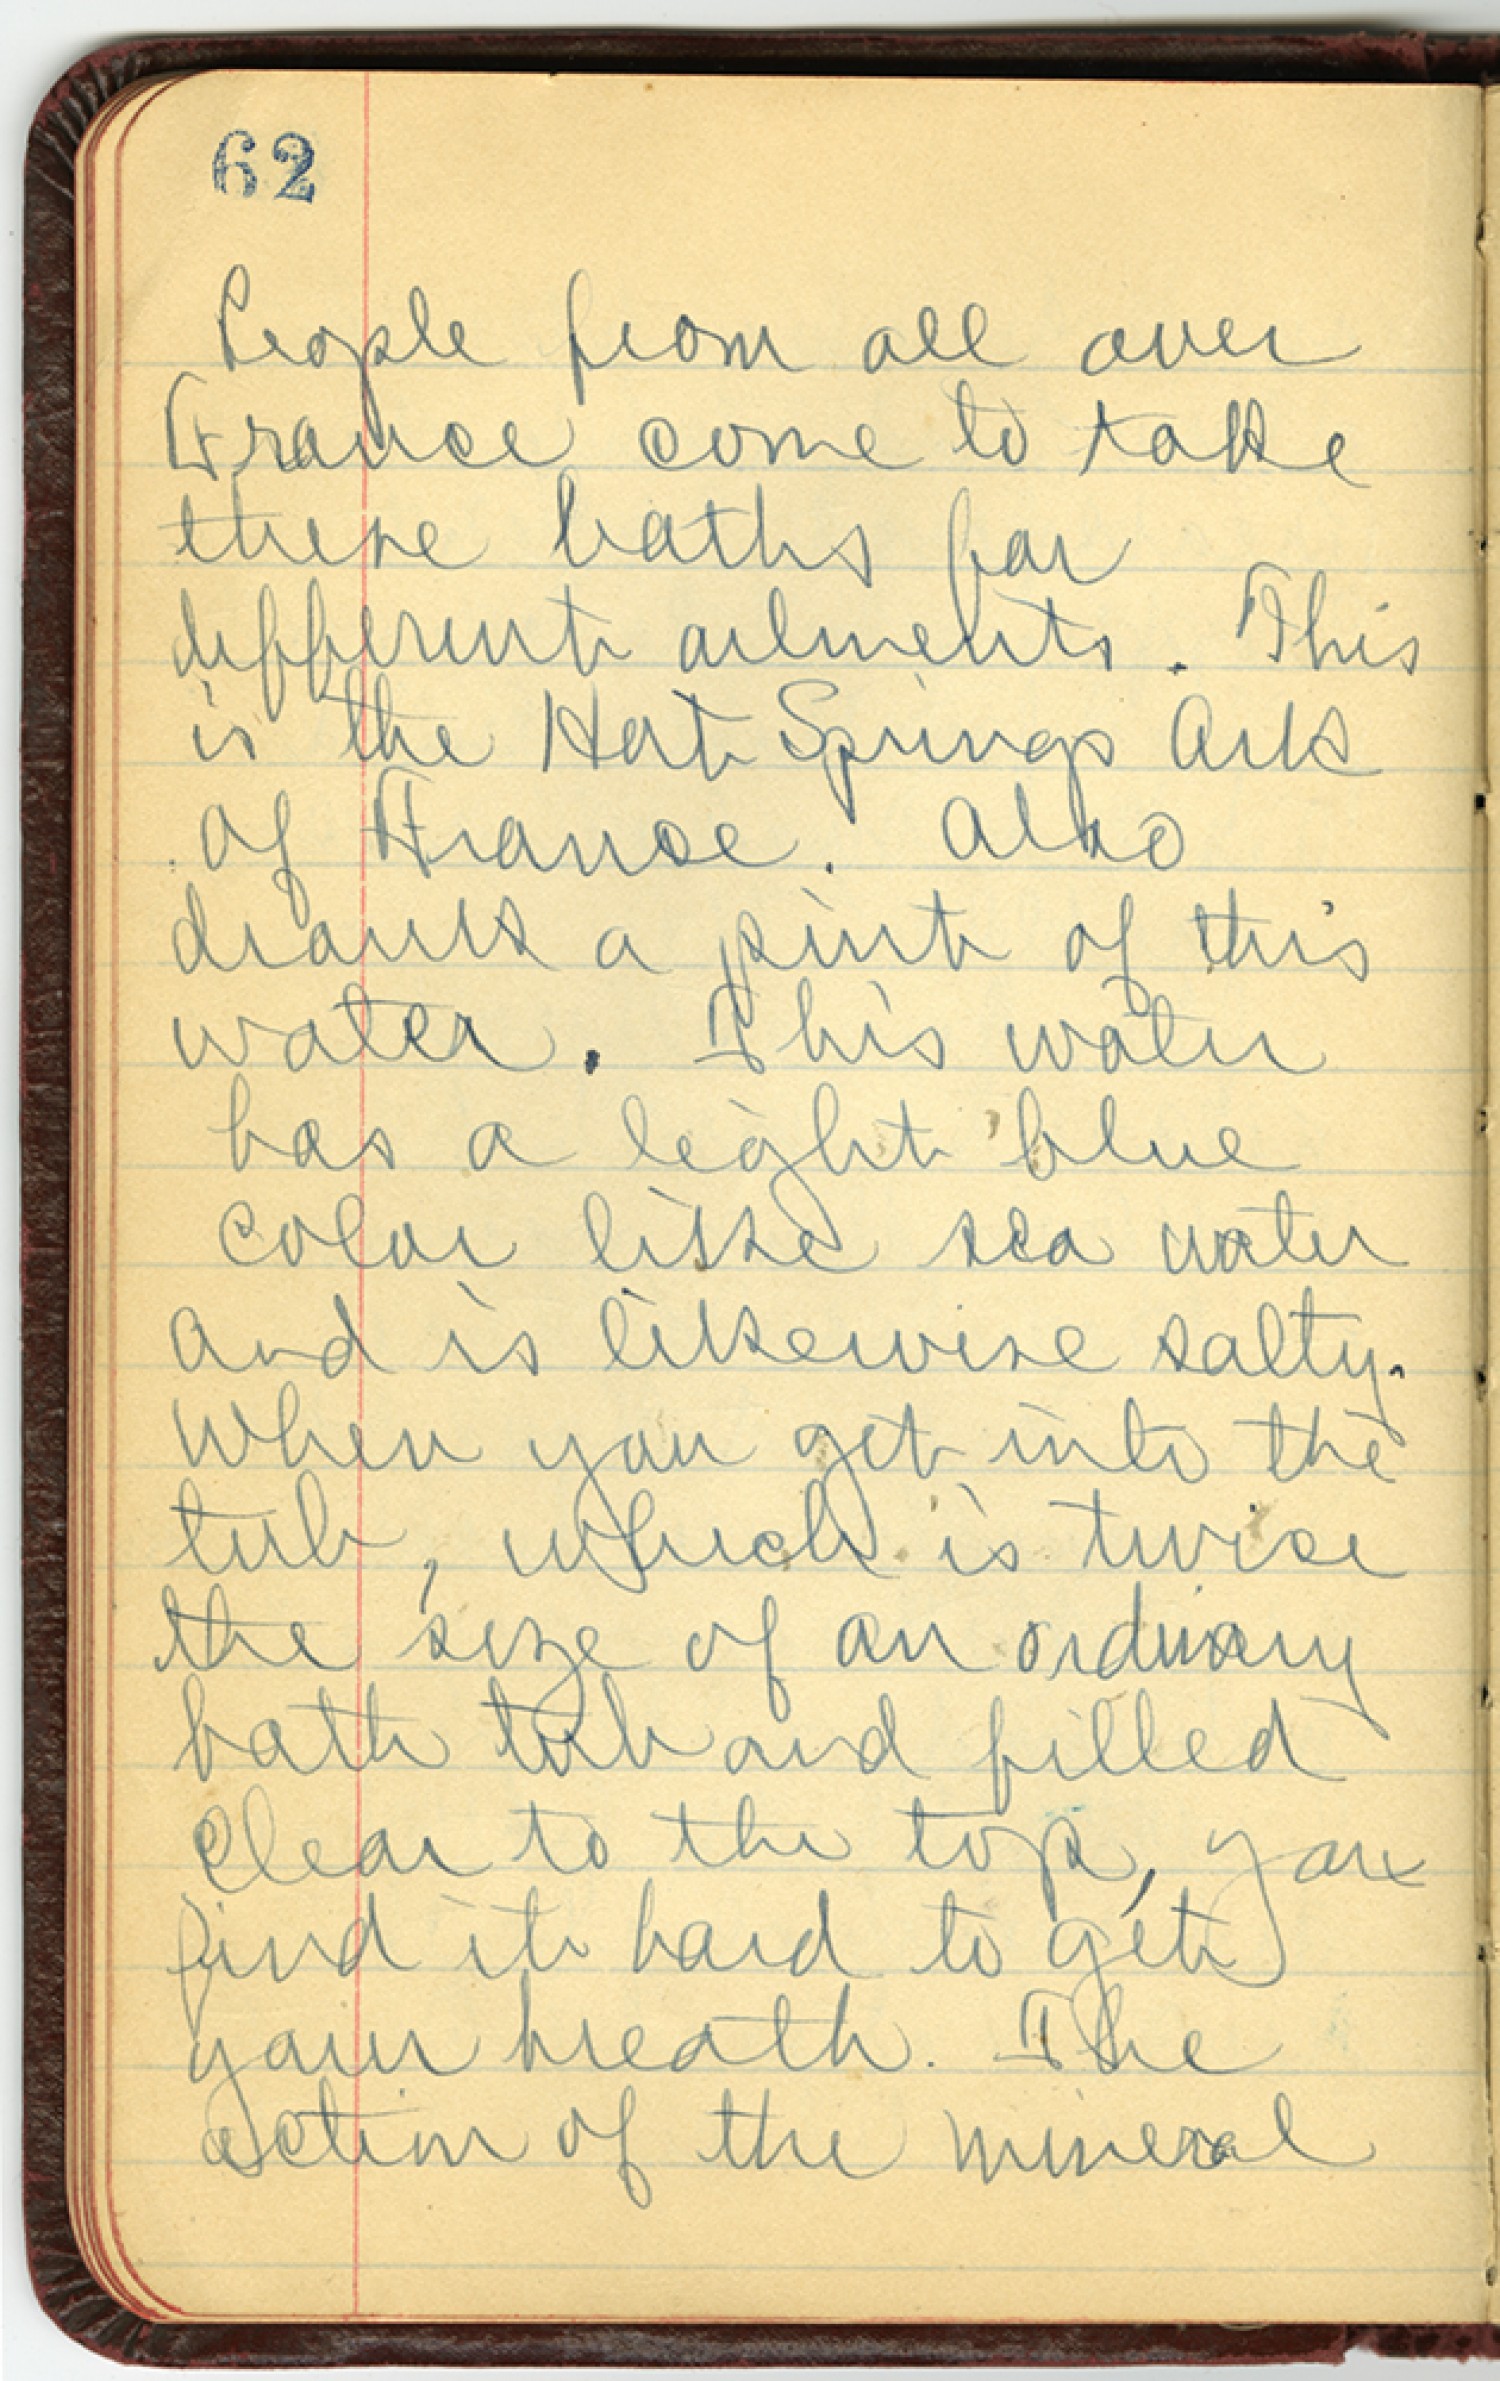 62
People from all over
France come to take
these baths for
different ailments. This
is the Hot Springs Ark
of France. Also
drank a pint of this
water. This water
has a light blue
color like sea water
and is likewise salty.
When you get into the
tub, which is twice
the size of an ordinary
bath tub and filled
clear to the top, you
find it hard to get
your breath. The
action of the mineral